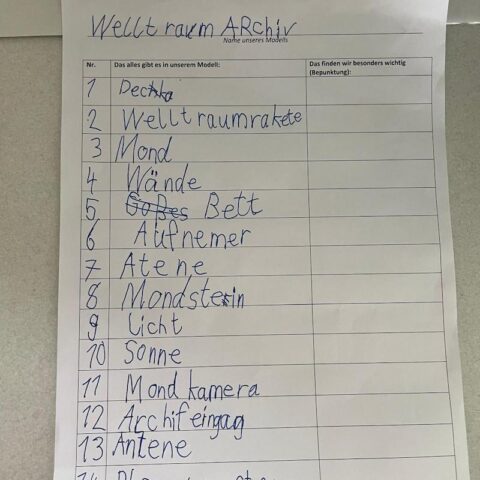 Welltraum ARchiv
Name unseres Modells
Nr. Das alles gibt es in unserem Modell: Das finden wir besonders wichtig (Bepunktung):
1
2 Welltraumrakete
3 Mond
4 Wände
5 Goßes Bett
6 Aufnemer
7 Atene
8 Mondstein
9 Licht
10 Sonne
11 Mond kamera
12 Archifeingag
13 Antene